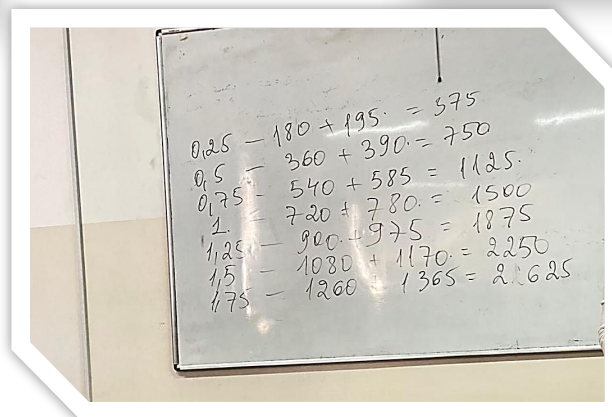 0,25 — 180 + 195. = 375
0,5 — 360 + 390. = 750
0,75 — 540 + 585 = 1125.
1. — 720 + 780. = 1500
1,25 — 900. + 975 = 1875
1,5 — 1080 + 1170. = 2250
1,75 — 1260 + 1365 = 2625